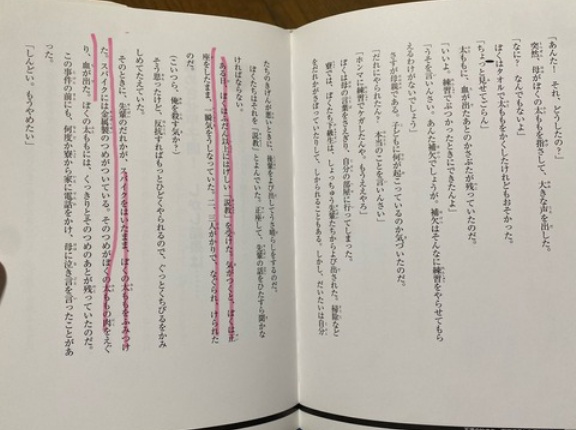 「あんた！　それ、どうしたの？」
突然、母がぼくの太ももを指さして、大きな声を出した。
「なに！　なんでもないよ」
ぼくはタオルで太ももをかくしたけれどもおそかった。
「ちょっと見せてごらん」
太ももに、血が出たあとのかさぶたが残っていたのだ。
「いいよ。練習でぶつかったときにできたんよ」
「うそを言いんさい。あんた補欠でしょうが。補欠はそんなに練習をやらせてもら
えるわけがないでしょう」
さすが母親である。子どもに何が起こっているのか気づいたのだ。
「だれにやられたん？　本当のことを言いんさい」
「ホンマに練習でケガしたんや。もうええやろ」
ぼくは母の言葉をさえぎり、自分の部屋に行ってしまった。
寮では、ぼくたち下級生は、しょっちゅう先輩たちからよび出された。掃除など
をだれかがさぼっていたりして、しかられることもある。しかし、だいたいは自分
たちのきげんが悪いときに、後輩をよび出してうさ晴らしをするのだ。
ぼくたちはそれを「説教」とよんでいた。正座して、先輩の話をひたすら聞かな
ければならない。
ある日、ぼくはふだん以上にはげしい「説教」を受けた。気がつくと、ぼくは正
座をしたまま、一瞬気をうしなっていた。二、三人がかりで、なぐられ、けられた
のだ。
（こいつら、俺を殺す気か？）
そう思ったけど、反抗すればもっとひどくやられるので、ぐっとくちびるをかみ
しめてたえていた。
そのときに、先輩のだれかが、スパイクをはいたまま、ぼくの太ももをふみつけ
た。スパイクには金属製のつめがついている。そのつめがぼくの太ももの肉をえぐ
り、血が出た。ぼくの太ももには、くっきりとそのつめのあとが残っていたのだ。
この事件の前にも、何度か寮から家に電話をかけ、母に泣き言を言ったことがあ
った。
「しんどい。もうやめたい」